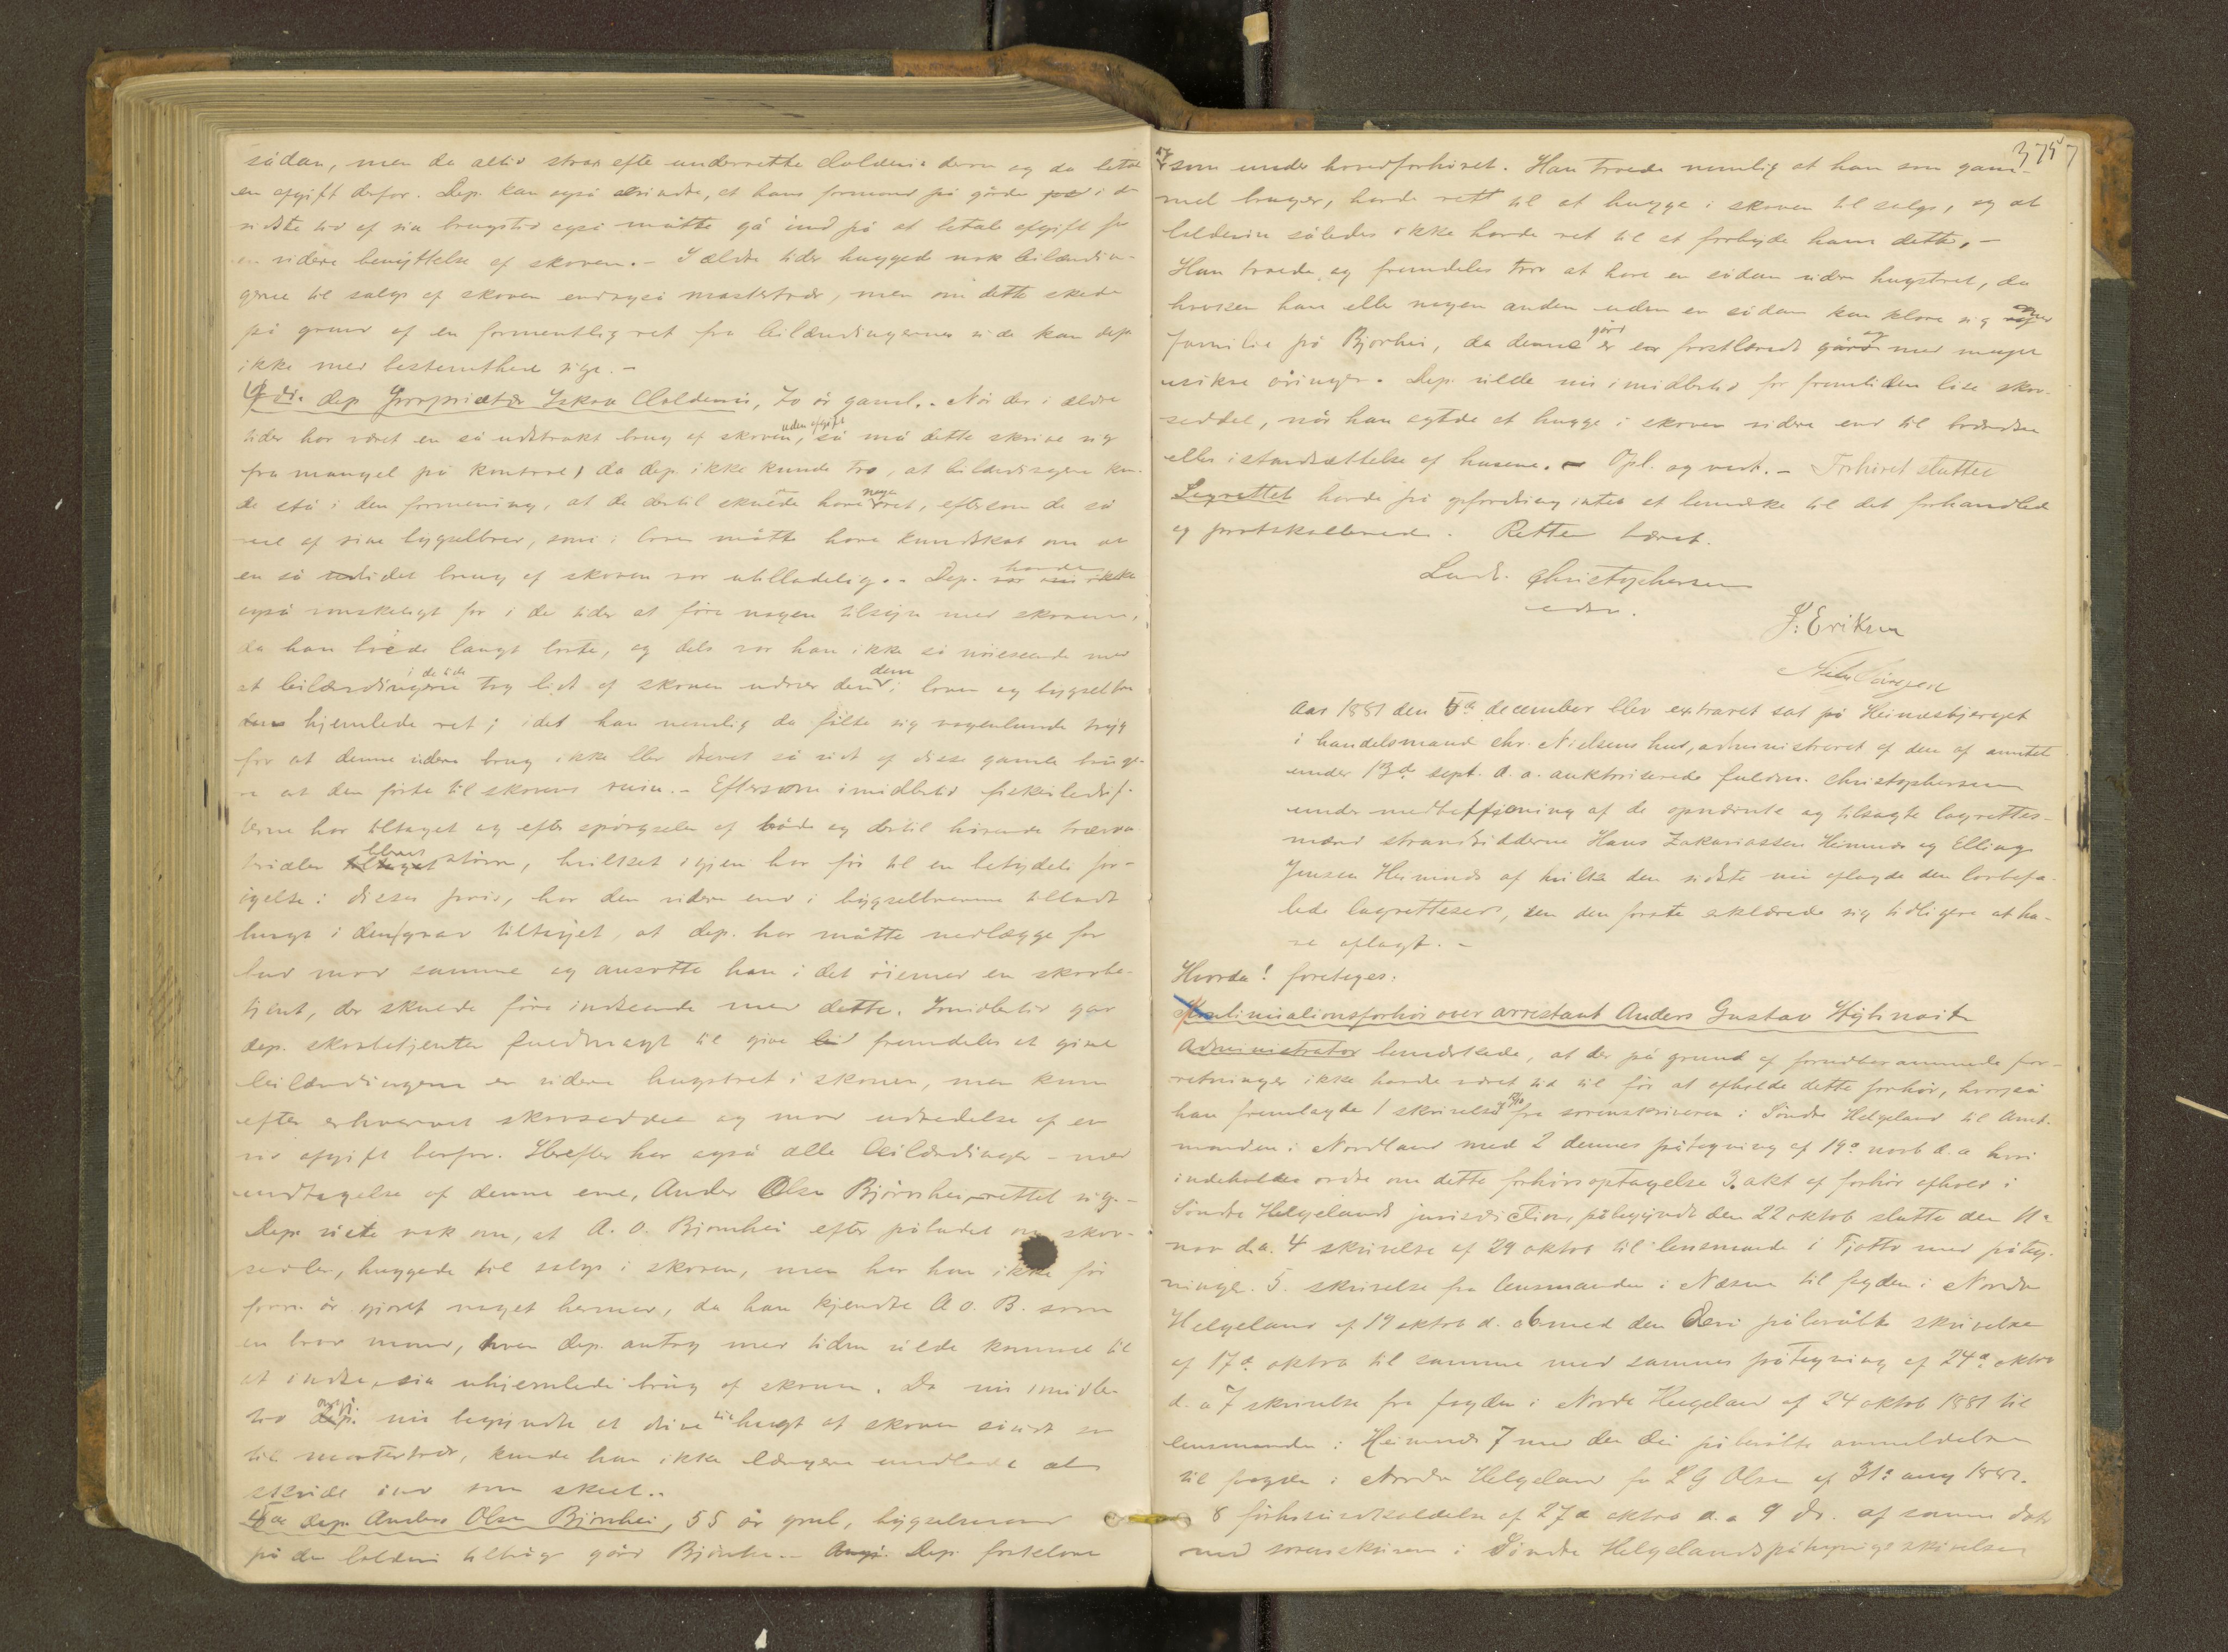 sådan, men da altid strax efter underrette Coldevin derom og da betale
en afgift derfor. Dep. kan også erindre, at hans formand på gården i de
sidste tid af sin brugstid også måtte gå ind på at betale afgift for
en videre benyttelse af skoven. – I ældre tider huggede nok leilændin-
gene til salgs af skoven endogså mastetrær, men om dette skede
på grund af en formentlig ret fra leilændingernes side kan dep.
ikke med bestemthed sige. –
dep. Proprietær Isak Coldevin, 70 år gaml. Når der i ældre
tider har været en så udstrakt brug af skoven, uden afgift så må dette skrive sig
fra mangel på kontrol, da dep. ikke kunde tro, at leilændingene kun-
de stå i den formening, at de dertil skulde have nogen ret, eftersom de så
vel af sine bygselbrev, som i loven måtte have kundskab om at
en så vidt brug af skoven var utilladelig. – Dep. havde ikke
også vanskeligt for i de tider at føre nogen tilsyn med skoven,
da han boede langt borte, og dels var han ikke så nøieseende med
at leilændingerne i de tider tog lidt af skoven udover den dem i loven og bygselbrev
hjemlede ret; idet han nemlig da følte sig nogenlunde tryg
for at denne videre brug ikke blev drevet så vidt af disse gamle bruge-
re at den førte til skovens ruin. – Eftersom imidlertid fiskeribedrif-
terne har tiltaget og efterspørgselen af både og dertil hørende træma-
terialer blevet større, hvilket igjen har før til en betydelig for-
øgelse i disses pris, har den videre end i bygselbrevene tilladt
hugst i den grad tiltaget, at dep. har måtte nedlægge for
bud mod samme og ansatte han i det øiemed en skovbe-
tjent, der skulde føre indseende med dette. Imidlertid gav
dep. skovbetjenten fuldmagt til fremdeles at give
leilændingene en videre hugstret i skoven, men kun
efter erhvervet skovseddel og mod udredelse af en
vis afgift herfor. Herefter har også alle leilændinger – med
undtagelse af denne ene, Anders Olsen Bjørnhei, rettet sig. –
Dep. viste nok om, at A. O. Bjørnhei efter påbudet om skov-
sedler, huggede til salgs i skoven, men har han ikke før
forr. år gjort noget hermed, da han kjendte A. O. B. som
en brav mand, hvem dep. antog med tiden vilde komme til
at indse, sin uhjemlede brug af skoven. Da nu imidler-
tid angj. nu begyndte at drive hugst af skoven såvidt som
til mastetrær, kunde han ikke længere undlade at
skride ind som skeet. –
dep. Anders Olsen Bjørnhei, 55 år gml, bygselmand
på den Coldevin tilhørige gård Bjørnhei. – Dep. forklare

375
som under hovedforhøret. Han troede nemlig at han som gam-
mel bruger, havde rett til at hugge i skoven til salgs, og at
Coldevin således ikke havde ret til at forbyde ham dette, –
Han troede og fremdeles tror at have en sådan videre hugstret, da
hverken han eller nogen anden uden en sådan kan klare sig med
familie på Bjørnhei, da denne gård er frostlændt og med meget
usikre åringer. Dep. vilde nu imidlertid for fremtiden løse skov-
seddel, når han agtede at hugge i skoven videre end til brændsel
eller istandsættelse af husene. – Opl. og vedt. – Forhøret sluttet
Lagrettet havde på opfordring intet at bemærke til det forhandlede
og protokollerede. Retten hævet.
Ludv. Christophersen
edsv.
J. Eriksen
Aar 1881 den 5te december blev extraret sat på Heinæsbjerget
i handelsmand Chr. Nielsens hus, administreret af den af amtet
under 13de sept. d. a. auktoriserede fuldm. Christophersen
under medbetjening af de opnævnte og tilsagte lagrettes-
mænd strandsidderne Hans Zakariassen Heimnes og Elling
Jensen Heimnes af hvilke den sidste nu aflagde den lovbefa-
lede lagretteseed, den første erklærede sig tidligere at ha-
ve aflagt. –
Hvorda! foretoges:
Kriminalionsforhør over arrestant Anders Gustav
Administrator bemærkede, at der på grund af forudberammede for-
retninger ikke havde været tid til før at afholde dette forhør, hvorpå
han fremlagde 1 skrivelse fra sorenskriveren i Søndre Helgeland til Amt-
manden i Nordland med 2 dennes påtegning af 19e novb d. a hvori
indeholdes ordre om dette forhørs optagelse 3. akt af forhør afholdt i
Søndre Helgelands jurisdiction, påbegyndt den 22 oktob sluttet den 11e
nov d.a. 4 skrivelse af 29 oktob til lensmanden i Tjøtta med påteg-
ninger. 5. skrivelse fra lensmanden i Næsna til fogden i Nordre
Helgeland af 19 oktob d. a 6 med den deri påberåbte skrivelse
af 17de oktob til samme med sammes påtegning af 24de oktob
d. a 7 skrivelse fra fogden i Nordre Helgeland af 24 oktob 1881 til
lensmanden i Heimnes 7 med den deri påberåbte anmeldelse
til fogden i Nordre Helgeland fra L G Olsen af 31e aug 1881.
8 forhørsudskrift af 27de oktob d. a 9 do. af samme dato
med sorenskriveren i Søndre Helgelands påtegnings skrivelse